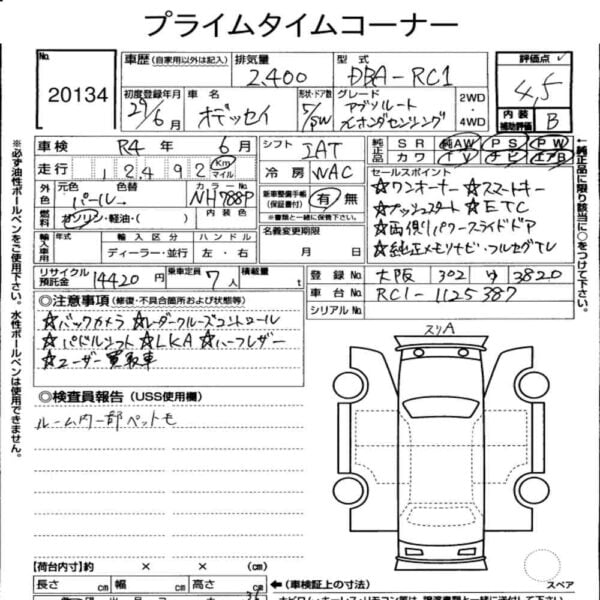 プライムタイムコーナー
No. 20134
車歴 (自家用以外は記入) 排気量 2,400 型式 DBA-RC1 評価点 4.5
初度登録年月 29/6月 車名 オデッセイ 形状・ドア数 5/SW グレード アブソルート ホンダセンシング 2WD 4WD 内装補助評価 B
車検 R4年 6月 シフト IAT 純正品 SR 純AW PS PW
カワ TV ナビ エアB
走行 12492 Km マイル 冷房 WAC セールスポイント
外色 元色 パール 色替 カラーNo. NH788P 新車整備手帳(保証書付) 有 無
※書類と一緒に保管下さい。
☆ワンオーナー ☆スマートキー
☆プッシュスタート ☆ETC
☆両側パワースライドドア
☆純正メモリナビ・フルセグTV
燃料 ガソリン・軽油・( ) 内装色
輸入車用 年式 輸入区分 ハンドル
ディーラー・並行 左・右
名義変更期限 月 日
リサイクル預託金 14420円 乗車定員 7人 積載量 t
登録No. 大阪 302 ゆ 3820
車台No. RC1-1125387
シリアルNo.
◎注意事項 (修復・不具合箇所および状態等)
☆バックカメラ ☆レーダークルーズコントロール
☆パドルシフト ☆LKA ☆ハーフレザー
☆ユーザー買取車
スリA
◎検査員報告 (USS使用欄)
ルーム内一部ペットモ
【荷台内寸】約 × × (cm)
長さ cm 幅 cm 高さ cm
←(車検証上の寸法)
スペア
※必ず油性ボールペンをご使用下さい。水性ボールペンは使用できません。
←純正品に限り該当に○をつけて下さい。